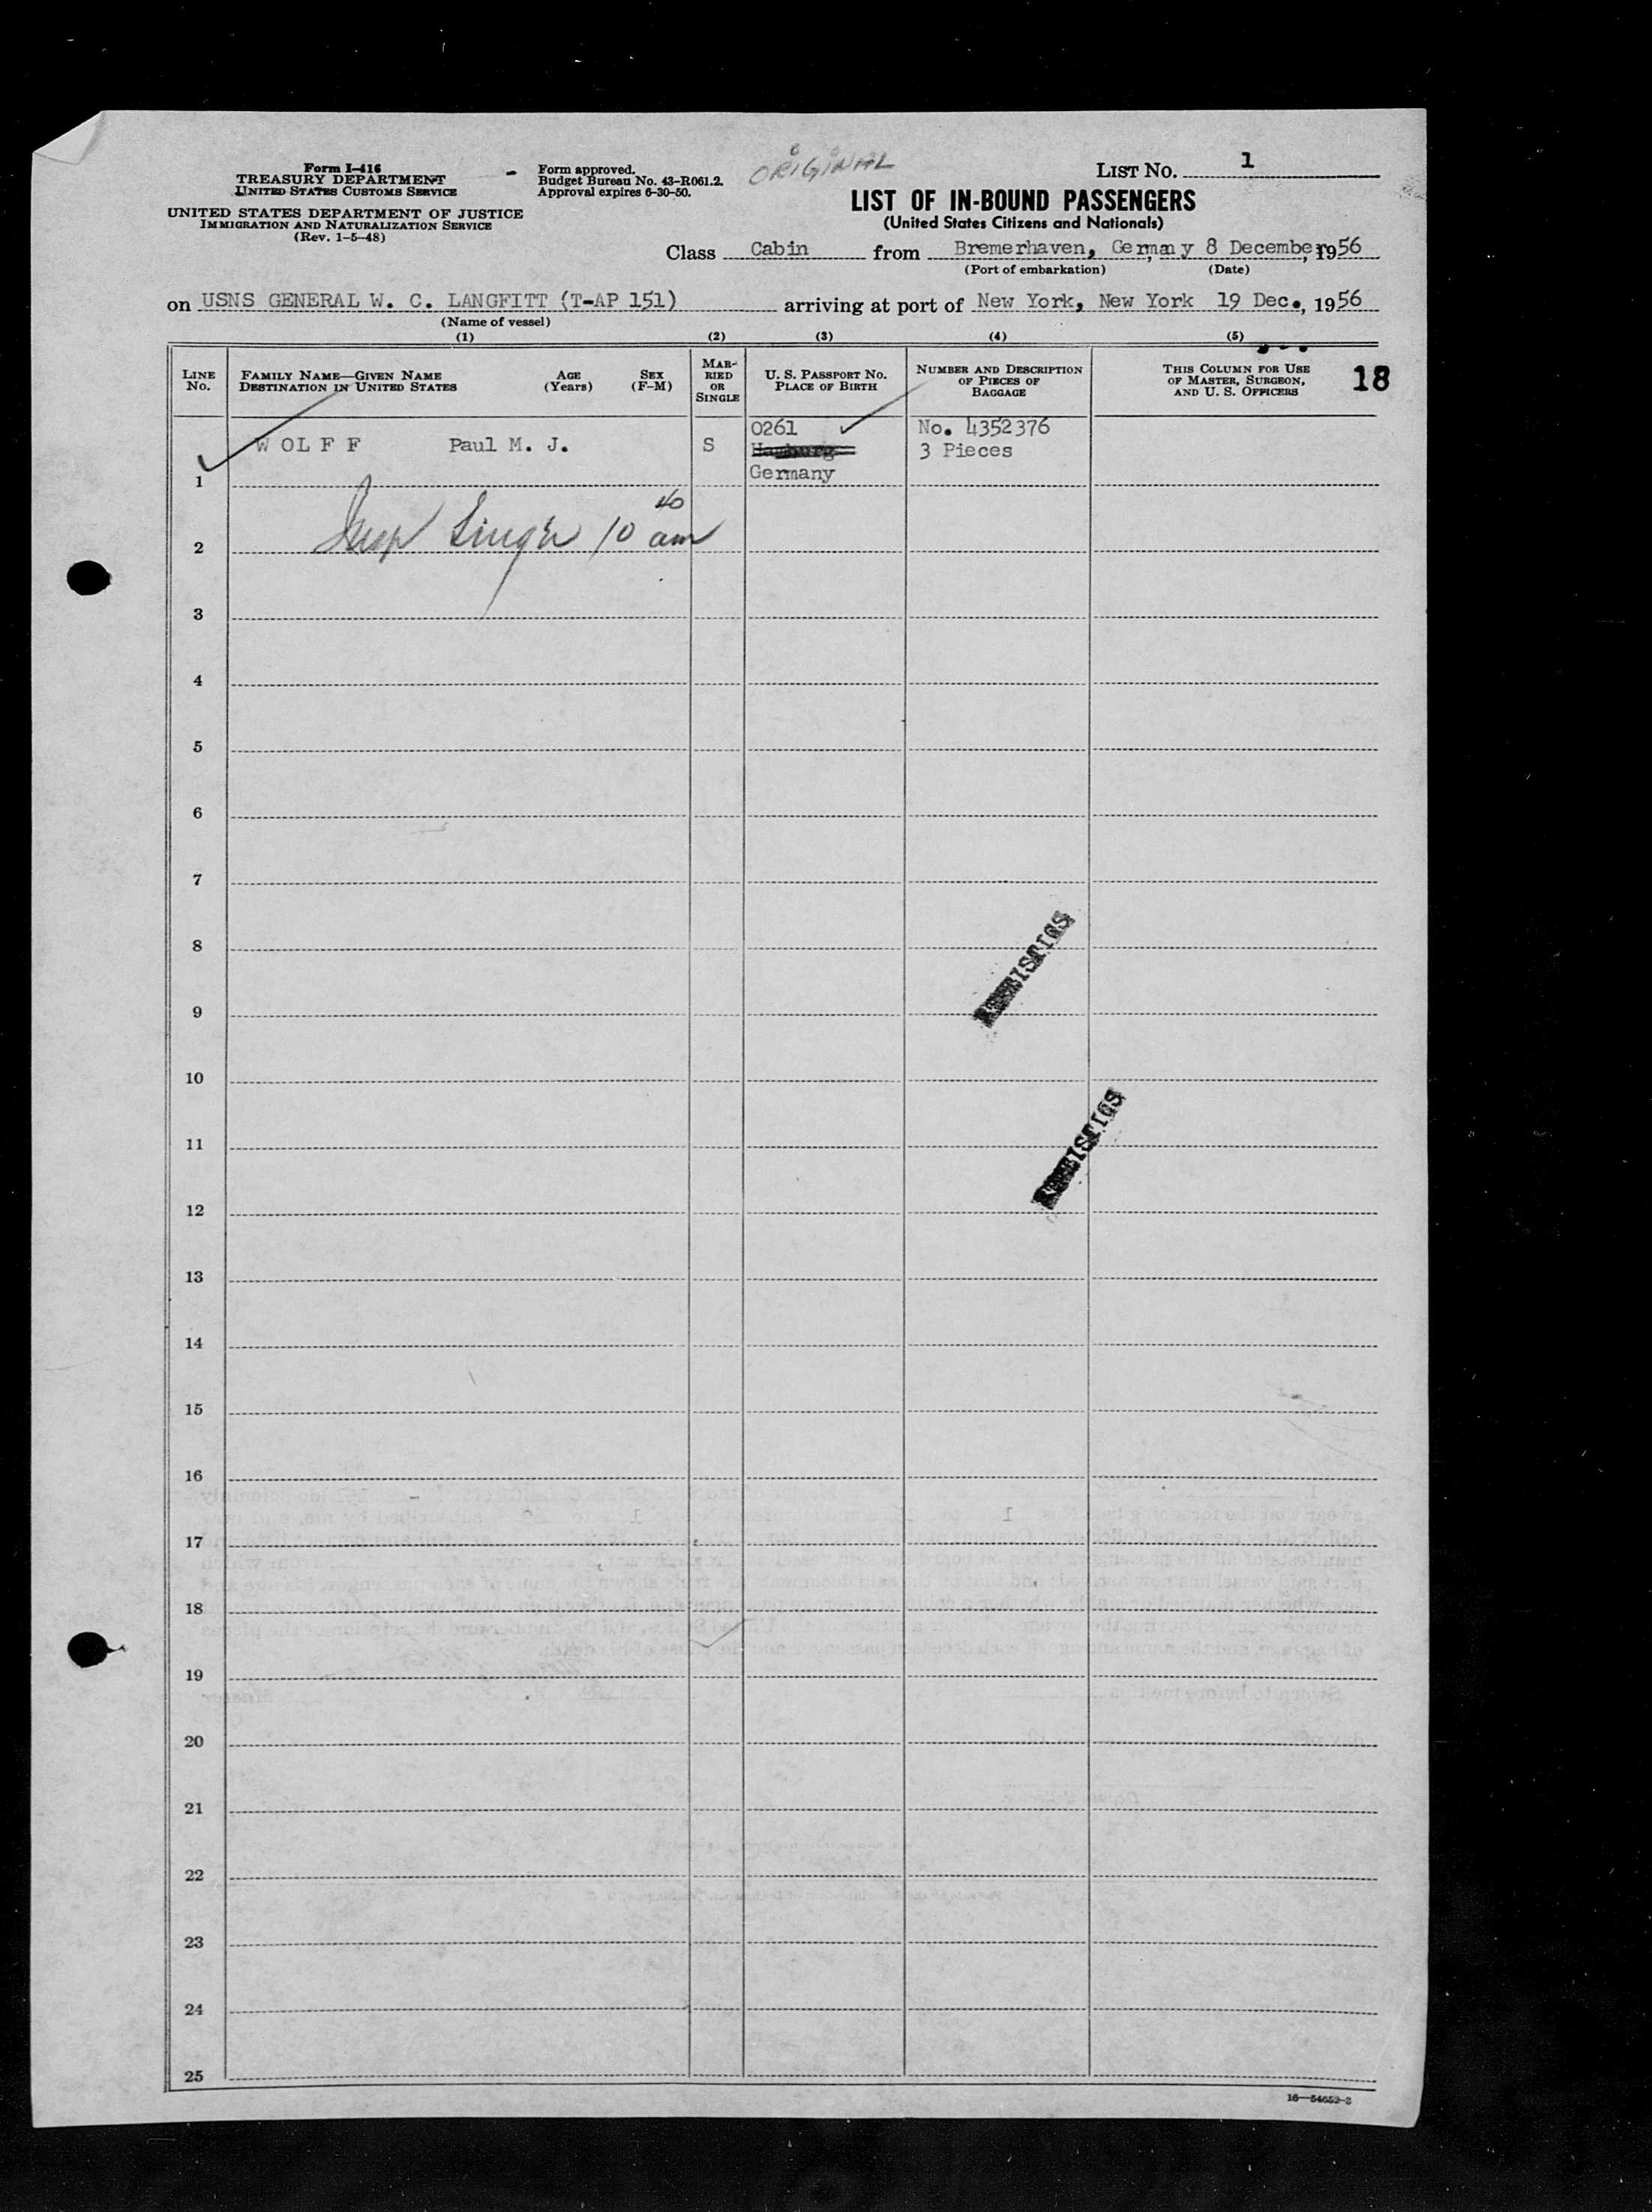 Form I-416
TREASURY DEPARTMENT
UNITED STATES CUSTOMS SERVICE
UNITED STATES DEPARTMENT OF JUSTICE
IMMIGRATION AND NATURALIZATION SERVICE
(Rev. 1-5-48)
Form approved.
Budget Bureau No. 43-R061.2.
Approval expires 6-30-50.
ORIGINAL
LIST NO. 1
LIST OF IN-BOUND PASSENGERS
(United States Citizens and Nationals)
Class Cabin from Bremerhaven, Germany 8 December, 1956
(Port of embarkation) (Date)
on USNS GENERAL W. C. LANGFITT (T-AP 151) arriving at port of New York, New York 19 Dec., 1956
(Name of vessel)
(1) (2) (3) (4) (5)
LINE NO.
FAMILY NAME—GIVEN NAME
DESTINATION IN UNITED STATES
AGE
(Years)
SEX
(F-M)
MAR-
RIED
OR
SINGLE
U. S. PASSPORT NO.
PLACE OF BIRTH
NUMBER AND DESCRIPTION
OF PIECES OF
BAGGAGE
THIS COLUMN FOR USE
OF MASTER, SURGEON,
AND U. S. OFFICERS
18
0261 No. 4352376
W O L F F Paul M. J. S Hamburg 3 Pieces
Germany
1
Insp Singer 10 40 am
2
3
4
5
6
7
8
9
10
11
12
13
14
15
16
17
18
19
20
21
22
23
24
25
16—54652-2